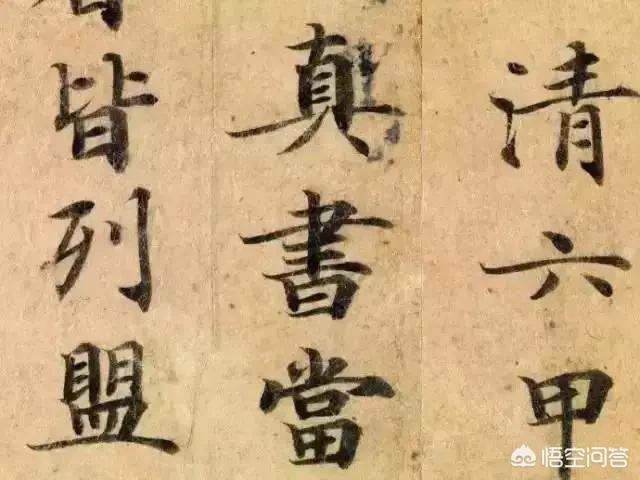 清六甲
真書當
皆列盟
悟空问答